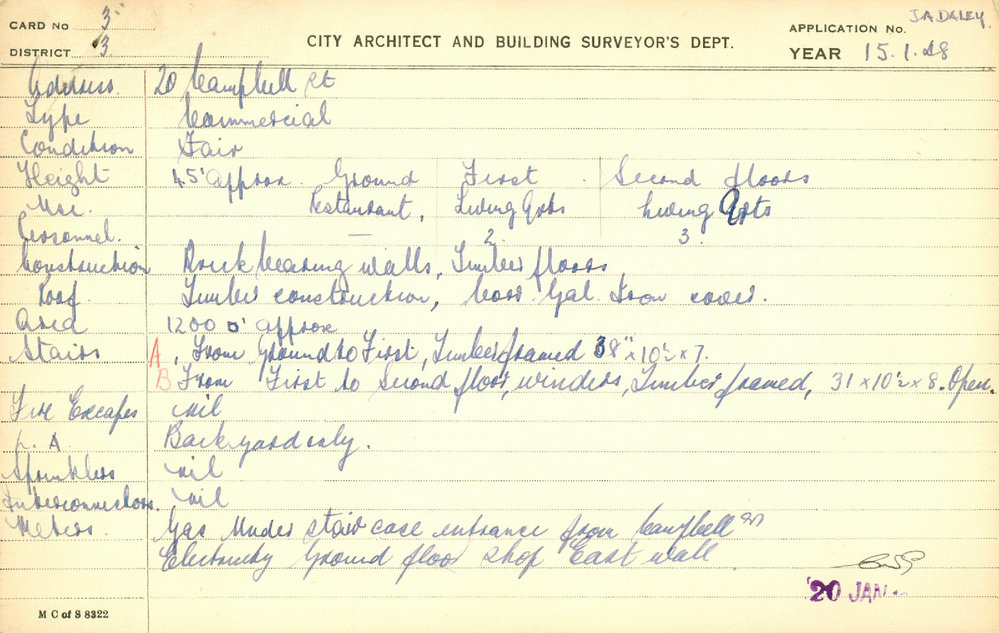 CARD No 3
DISTRICT 3
CITY ARCHITECT AND BUILDING SURVEYOR'S DEPT.
J A DALEY.
APPLICATION No.
YEAR 15.1.48
Address 20 Campbell St
Type Commercial
Condition Fair
Height 45' approx. Ground First Second floors
Use. Restaurant, Living Qrts Living Qrts
Personnel. — 2. 3.
Construction Brick bearing walls, Timber floors
Roof. Timber construction, Corr. Gal. Iron cover.
Area 1200 □' approx
Stairs A, From Ground to First, Timber framed 38" x 10½ x 7.
B From First to Second floor, winders, Timber framed, 31 x 10½ x 8. Open.
Fire Escapes nil
L. A Back yard only.
Sprinklers nil
Interconnections. nil
Meters. Gas Under stair case entrance from Campbell St
Electricity Ground floor shop East wall
20 JAN
M C of S 8322